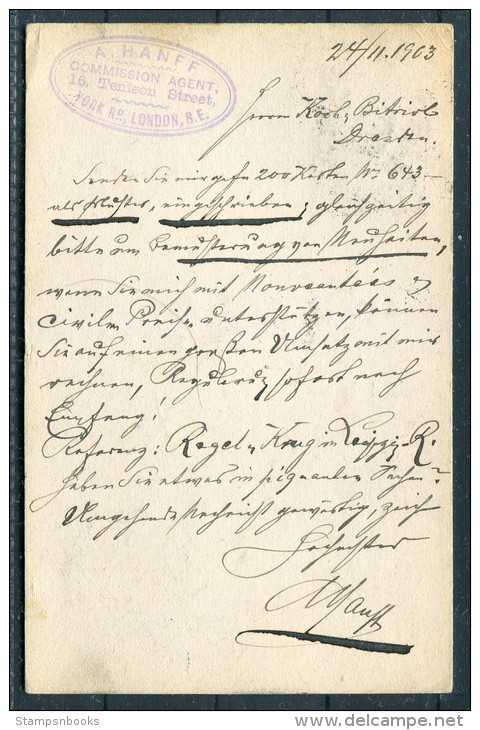 A. HANFF
COMMISSION AGENT,
16, Tenison Street,
YORK RD, LONDON, S.E.
24/11.1903
Herrn Koch & Bitriol
Dresden.
Senden Sie mir gefl. 200 Karten No 643
als Muster, eingeschrieben, gleichzeitig
bitte um Bemusterung von Neuheiten,
wenn Sie mich mit Nouveautées &
civilen Preisen unterstützen, können
Sie auf einen großen Umsatz mit mir
rechnen, Regulirung sofort nach
Empfang!
Referenz: Regel & Krug in Leipzig-R.
Haben Sie etwas in piquanten Sachen?
Umgehende Nachricht gewärtig, zeich
Hochachtend
AHanff
Stampsnbooks
delcampe.net